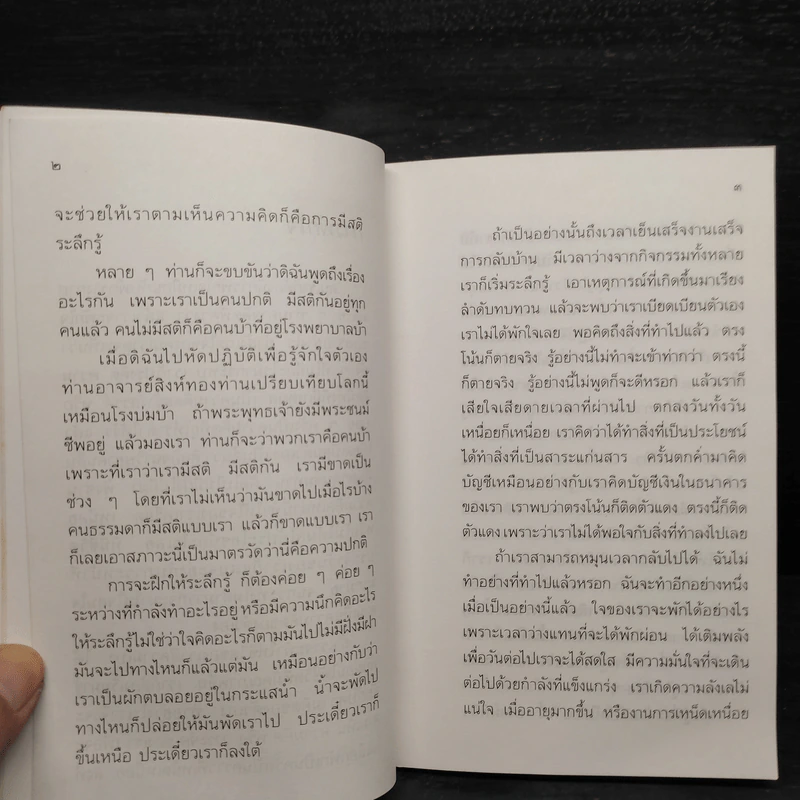 ๒
จะช่วยให้เราตามเห็นความคิดก็คือการมีสติ
ระลึกรู้
หลาย ๆ ท่านก็จะขบขันว่าดิฉันพูดถึงเรื่อง
อะไรกัน เพราะเราเป็นคนปกติ มีสติกันอยู่ทุก
คนแล้ว คนไม่มีสติก็คือคนบ้าที่อยู่โรงพยาบาลบ้า
เมื่อดิฉันไปหัดปฏิบัติเพื่อรู้จักใจตัวเอง
ท่านอาจารย์สิงห์ทองท่านเปรียบเทียบโลกนี้
เหมือนโรงบ่มบ้า ถ้าพระพุทธเจ้ายังมีพระชนม์
ชีพอยู่ แล้วมองเรา ท่านก็จะว่าพวกเราคือคนบ้า
เพราะที่เราว่าเรามีสติ มีสติกัน เรามีขาดเป็น
ช่วง ๆ โดยที่เราไม่เห็นว่ามันขาดไปเมื่อไรบ้าง
คนธรรมดาก็มีสติแบบเรา แล้วก็ขาดแบบเรา เรา
ก็เลยเอาสภาวะนี้เป็นมาตรวัดว่านี่คือความปกติ
การจะฝึกให้ระลึกรู้ ก็ต้องค่อย ๆ ค่อย ๆ
ระหว่างที่กำลังทำอะไรอยู่ หรือมีความนึกคิดอะไร
ให้ระลึกรู้ไม่ใช่ว่าใจคิดอะไรก็ตามมันไปไม่มีฝั่งมีฝา
มันจะไปทางไหนก็แล้วแต่มัน เหมือนอย่างกับว่า
เราเป็นผักตบลอยอยู่ในกระแสน้ำ น้ำจะพัดไป
ทางไหนก็ปล่อยให้มันพัดเราไป ประเดี๋ยวเราก็
ขึ้นเหนือ ประเดี๋ยวเราก็ลงใต้
๓
ถ้าเป็นอย่างนั้นถึงเวลาเย็นเสร็จงานเสร็จ
การกลับบ้าน มีเวลาว่างจากกิจกรรมทั้งหลาย
เราก็เริ่มระลึกรู้ เอาเหตุการณ์ที่เกิดขึ้นมาเรียง
ลำดับทบทวน แล้วจะพบว่าเราเบียดเบียนตัวเอง
เราไม่ได้พักใจเลย พอคิดถึงสิ่งที่ทำไปแล้ว ตรง
โน้นก็ตายจริง รู้อย่างนี้ไม่ทำจะเข้าท่ากว่า ตรงนี้
ก็ตายจริง รู้อย่างนี้ไม่พูดก็จะดีหรอก แล้วเราก็
เสียใจเสียดายเวลาที่ผ่านไป ตกลงวันทั้งวัน
เหนื่อยก็เหนื่อย เราคิดว่าได้ทำสิ่งที่เป็นประโยชน์
ได้ทำสิ่งที่เป็นสาระแก่นสาร ครั้นตกค่ำมาคิด
บัญชีเหมือนอย่างกับเราคิดบัญชีเงินในธนาคาร
ของเรา เราพบว่าตรงโน้นก็ติดตัวแดง ตรงนี้ก็ติด
ตัวแดง เพราะว่าเราไม่ได้พอใจกับสิ่งที่ทำลงไปเลย
ถ้าเราสามารถหมุนเวลากลับไปได้ ฉันไม่
ทำอย่างที่ทำไปแล้วหรอก ฉันจะทำอีกอย่างหนึ่ง
เมื่อเป็นอย่างนี้แล้ว ใจของเราจะพักได้อย่างไร
เพราะเวลาว่างแทนที่จะได้พักผ่อน ได้เติมพลัง
เพื่อวันต่อไปเราจะได้สดใส มีความมั่นใจที่จะเดิน
ต่อไปด้วยกำลังที่แข็งแกร่ง เราเกิดความลังเลไม่
แน่ใจ เมื่ออายุมากขึ้น หรืองานการเหน็ดเหนื่อย